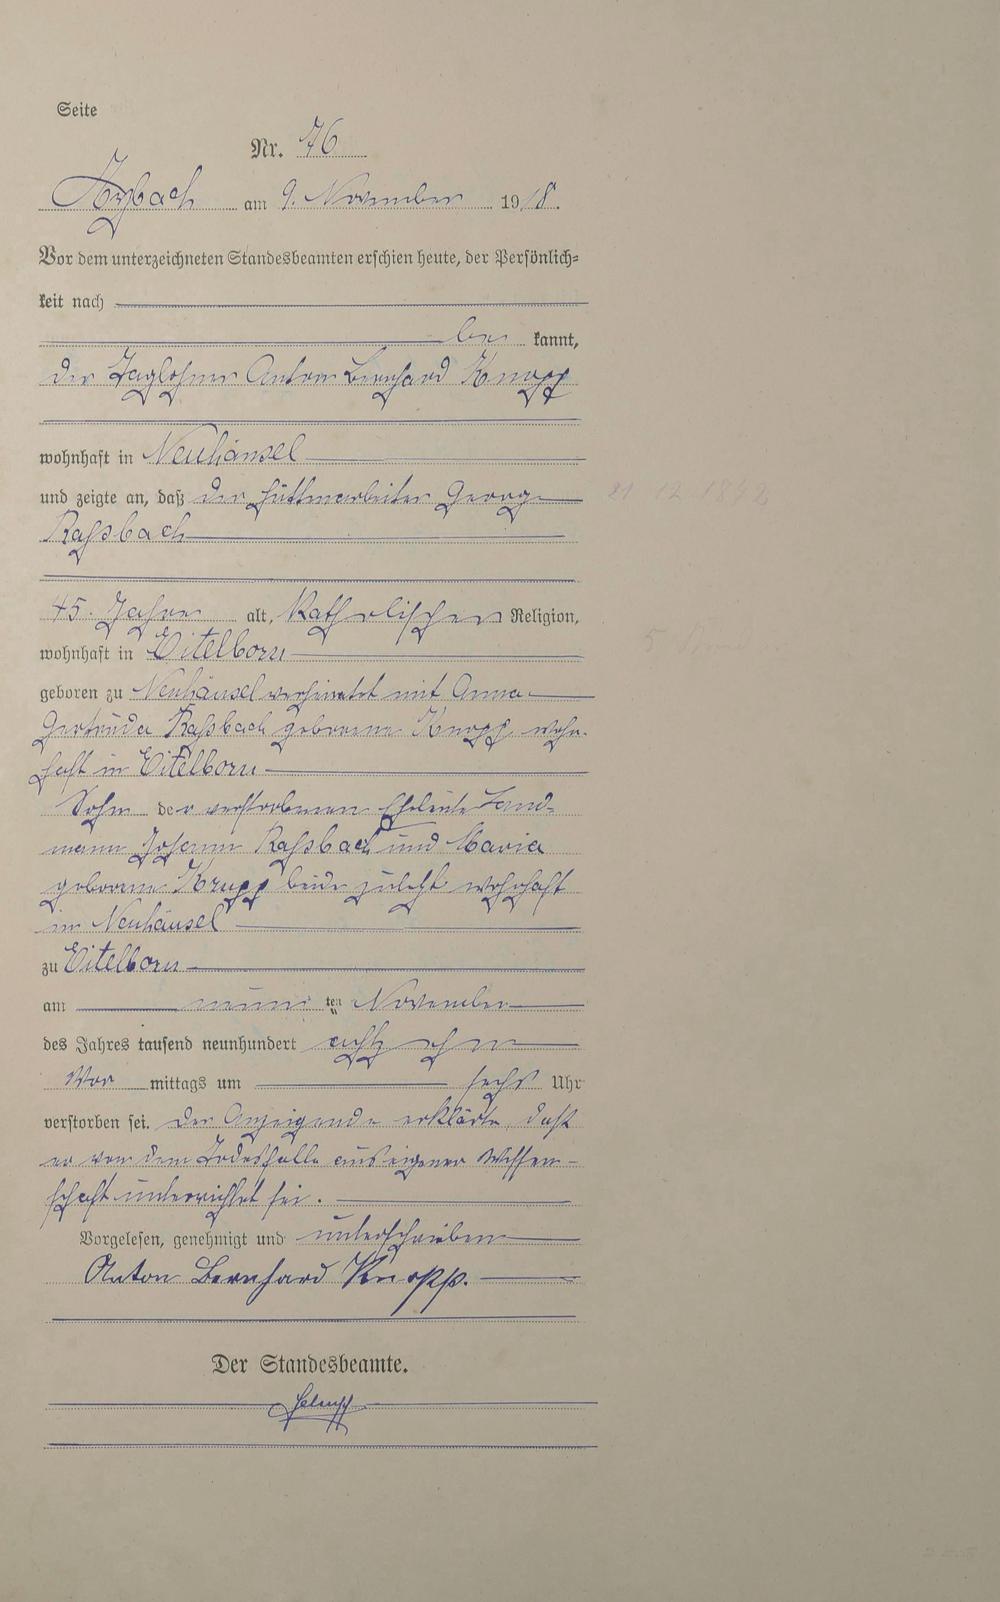 Seite
Nr. 76
Arzbach am 9. November 1918.
Vor dem unterzeichneten Standesbeamten erschien heute, der Persönlich=
keit nach
be kannt,
der Taglöhner Anton Bernhard Knopp
wohnhaft in Neuhäusel
und zeigte an, daß der Hüttenarbeiter Georg
Raßbach
45 Jahre alt, katholischer Religion,
wohnhaft in Eitelborn
geboren zu Neuhäusel verheiratet mit Anna
Gertruda Raßbach geborene Knopp wohn-
haft in Eitelborn
Sohn der verstorbenen Eheleute Land-
mann Johann Raßbach und Maria
geborene Krupp beide zuletzt wohnhaft
in Neuhäusel
zu Eitelborn
am neun ten November
des Jahres tausend neunhundert achtzehn
Vor mittags um sechs Uhr
verstorben sei. Der Anzeigende erklärte, daß
er von dem Todesfalle aus eigener Wissen-
schaft unterrichtet sei.
Vorgelesen, genehmigt und unterschrieben
Anton Bernhard Knopp.
Der Standesbeamte.